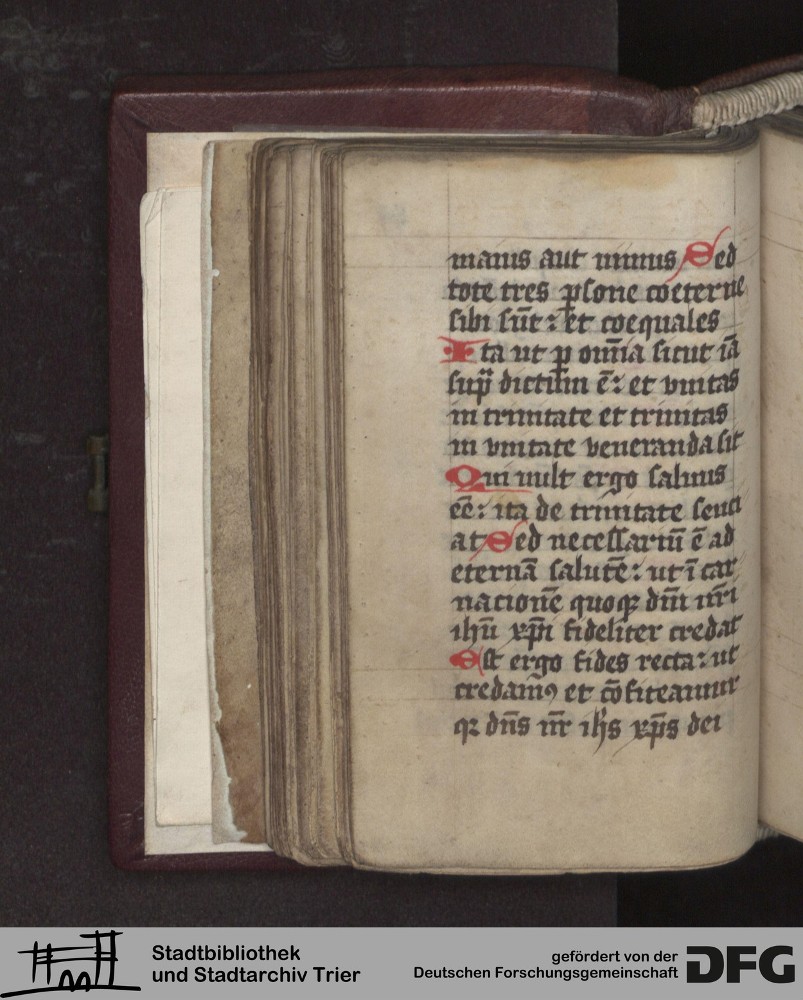 maius aut minus Sed
tote tres ꝑsone coeterne
sibi sūt : et coequales
Ita ut ꝑ om̄ia sicut iā
supͣ dictum ē : et vnitas
in trinitate et trinitas
in vnitate veneranda sit
Qui uult ergo saluus
eē : ita de trinitate senci
at Sed necessariū ē ad
eternā salutē : ut ī car
nacionē quoqꝫ dn̄i nr̄i
ihū xp̄i fideliter credat
Est ergo fides recta : ut
credamꝰ et cōfiteamur
qꝫ dn̄s nr̄ ihs xp̄s dei
Stadtbibliothek
und Stadtarchiv Trier
gefördert von der
Deutschen Forschungsgemeinschaft
DFG